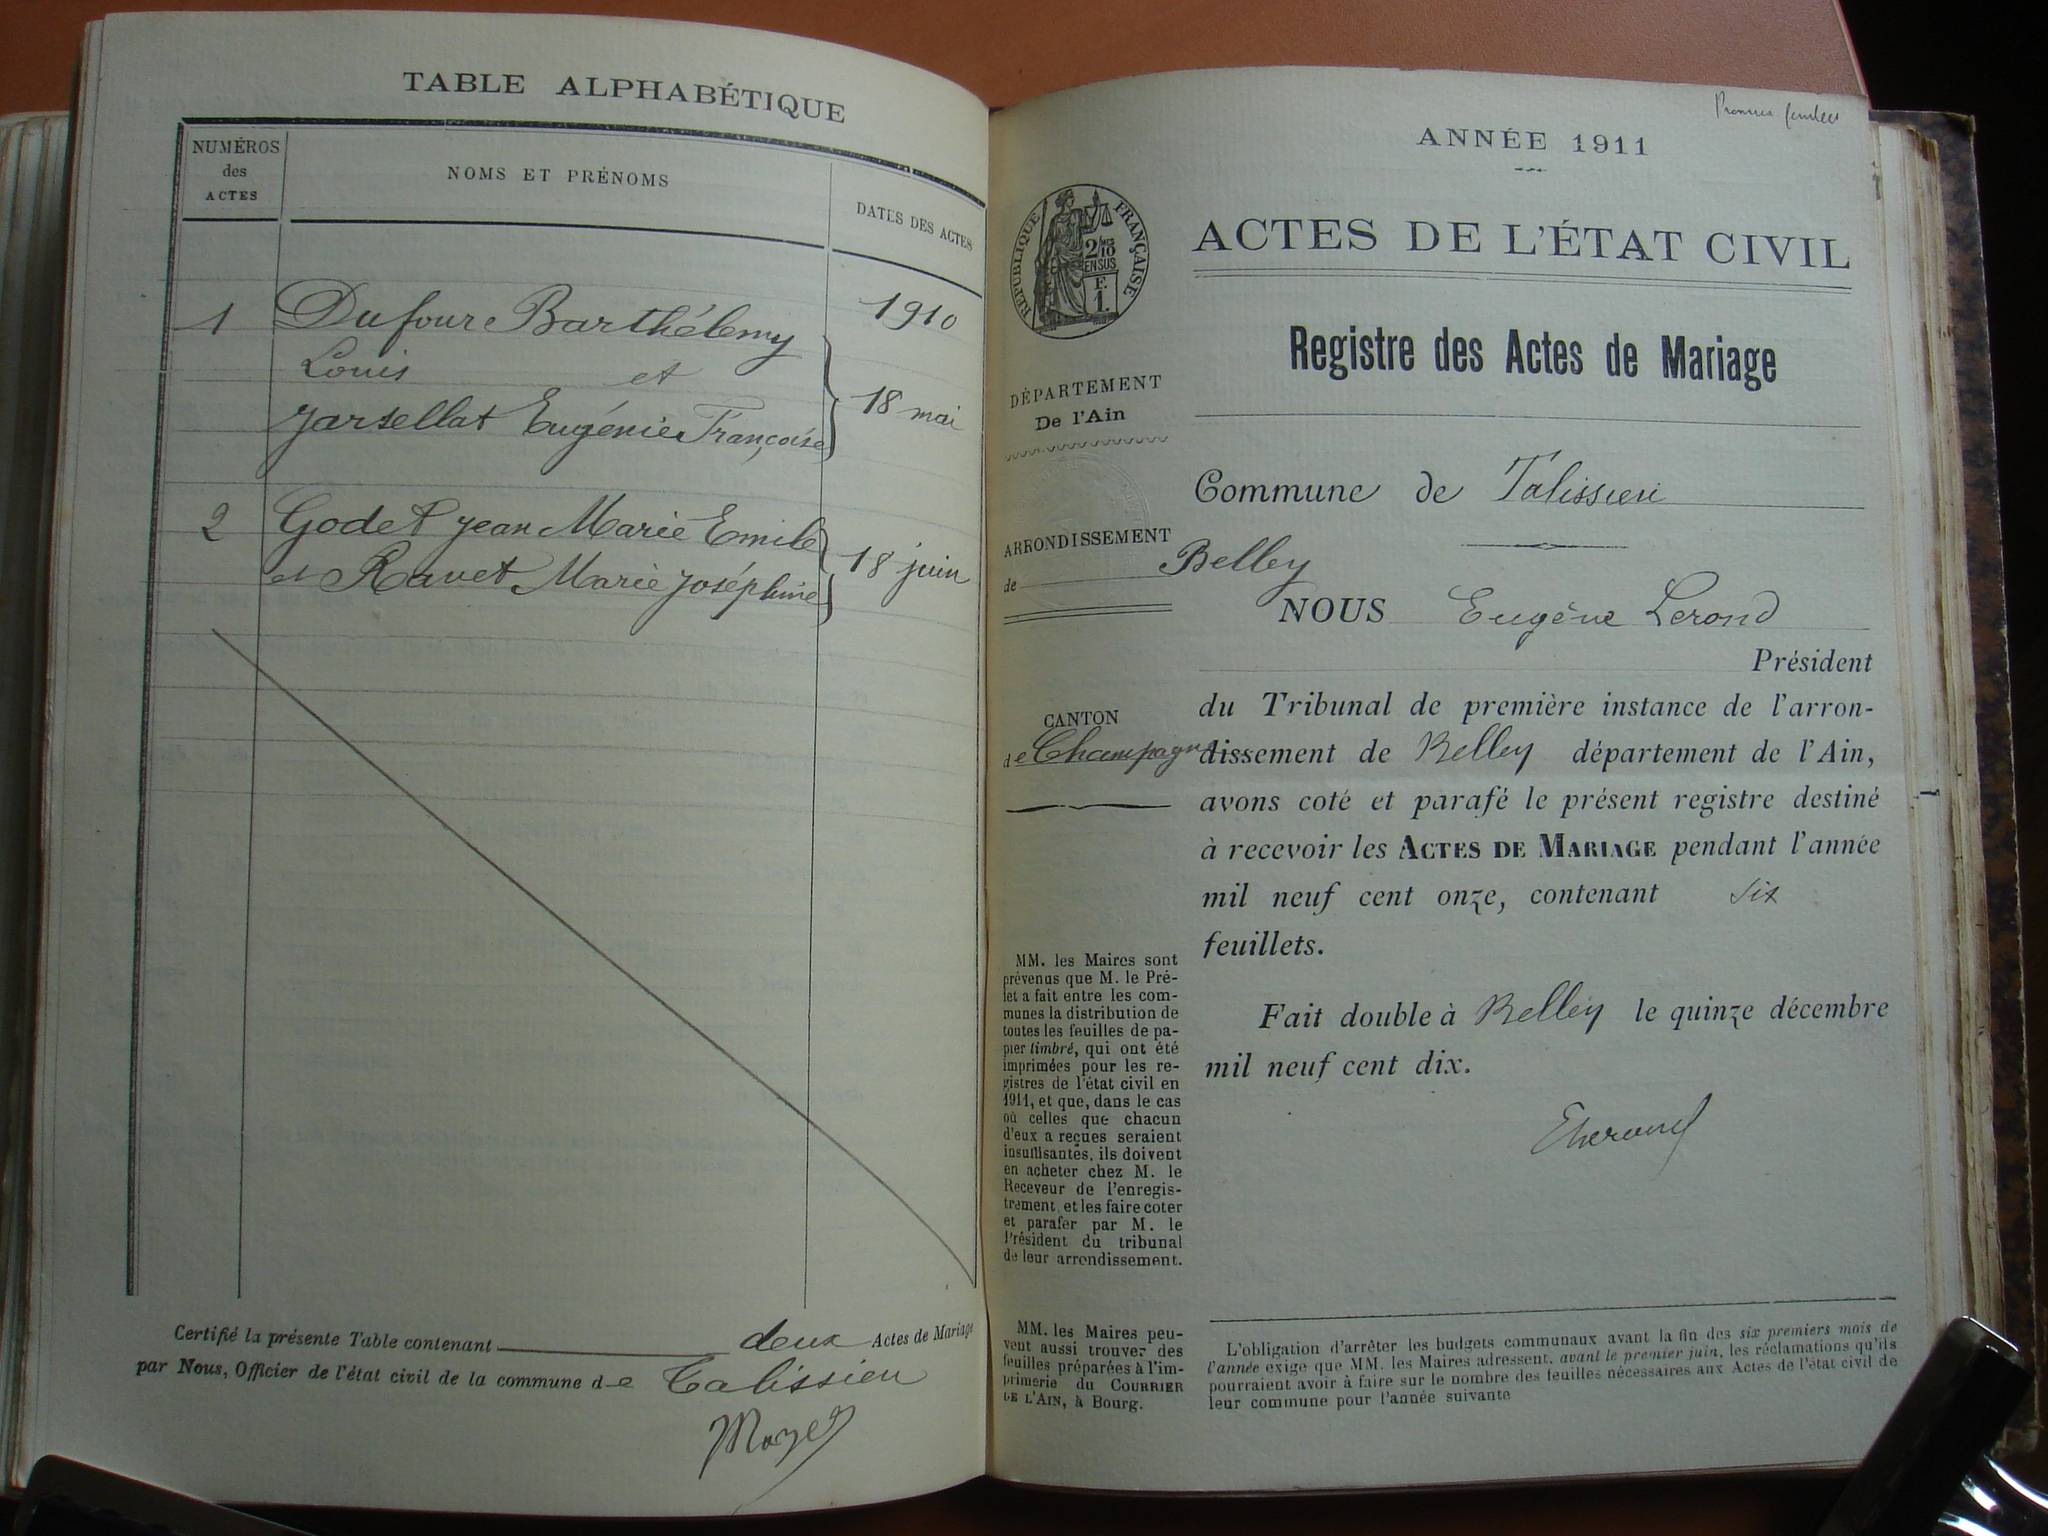 TABLE ALPHABÉTIQUE
NUMÉROS
des
ACTES
NOMS ET PRÉNOMS
DATES DES ACTES
1910
1 Dufour Barthélemy
Louis et
Jarsellat Eugénie Françoise
18 mai
2 Godet Jean Marie Emile
et Ravet Marie Joséphine
18 juin
Certifié la présente Table contenant deux Actes de Mariage
par Nous, Officier de l'état civil de la commune de Talissieu
ANNÉE 1911
RÉPUBLIQUE FRANÇAISE
2/10
EN SUS
F.
1.
ACTES DE L'ÉTAT CIVIL
Registre des Actes de Mariage
DÉPARTEMENT
De l'Ain
ARRONDISSEMENT
de Belley
CANTON
de Champagne
MM. les Maires sont
prévenus que M. le Pré-
fet a fait entre les com-
munes la distribution de
toutes les feuilles de pa-
pier timbré, qui ont été
imprimées pour les re-
gistres de l'état civil en
1911, et que, dans le cas
où celles que chacun
d'eux a reçues seraient
insuffisantes, ils doivent
en acheter chez M. le
Receveur de l'enregis-
trement, et les faire coter
et parafer par M. le
Président du tribunal
de leur arrondissement.
MM. les Maires peu-
vent aussi trouver des
feuilles préparées à l'im-
primerie du COURRIER
DE L'AIN, à Bourg.
Commune de Talissieu
NOUS Eugène Lerond
Président
du Tribunal de première instance de l'arron-
dissement de Belley département de l'Ain,
avons coté et parafé le présent registre destiné
à recevoir les ACTES DE MARIAGE pendant l'année
mil neuf cent onze, contenant six
feuillets.
Fait double à Belley le quinze décembre
mil neuf cent dix.
ELerond
L'obligation d'arrêter les budgets communaux avant la fin des six premiers mois de
l'année exige que MM. les Maires adressent, avant le premier juin, les réclamations qu'ils
pourraient avoir à faire sur le nombre des feuilles nécessaires aux Actes de l'état civil de
leur commune pour l'année suivante